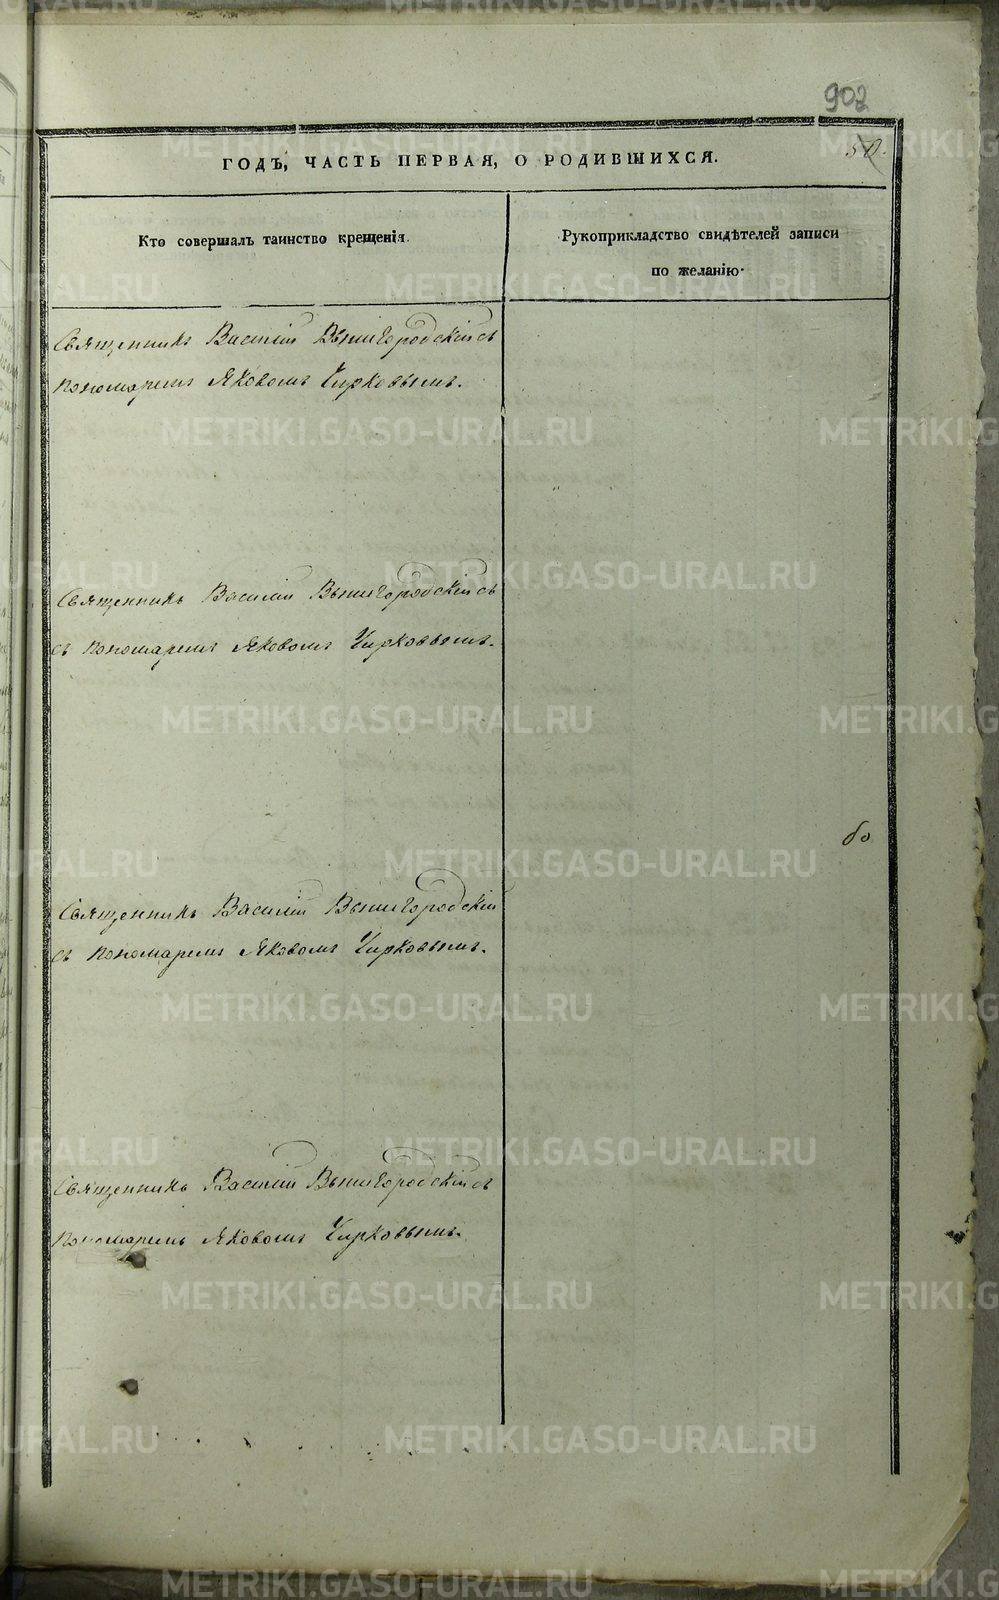 902
ГОДЪ, ЧАСТЬ ПЕРВАЯ, О РОДИВШИХСЯ.
50.
Кто совершалъ таинство крещенія.
Рукоприкладство свидѣтелей записи
по желанію.
Священникъ Василій Вышегородскій съ
пономаремъ Яковомъ Чирковымъ.
Священникъ Василій Вышегородскій съ
съ пономаремъ Яковомъ Чирковымъ.
бо
Священникъ Василій Вышегородскій
съ пономаремъ Яковомъ Чирковымъ.
Священникъ Василій Вышегородскій съ
пономаремъ Яковомъ Чирковымъ.
METRIKI.GASO-URAL.RU